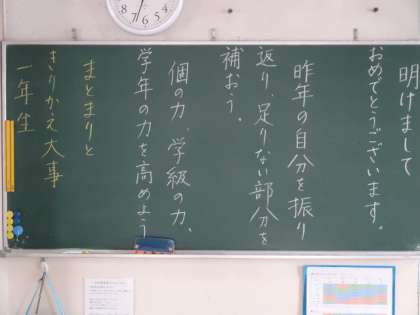 明けまして
おめでとうございます。
昨年の自分を振り
返り、足りない部分を
補おう。
個の力、学級の力、
学年の力を高めよう
まとまりと
きりかえ大事
一年生